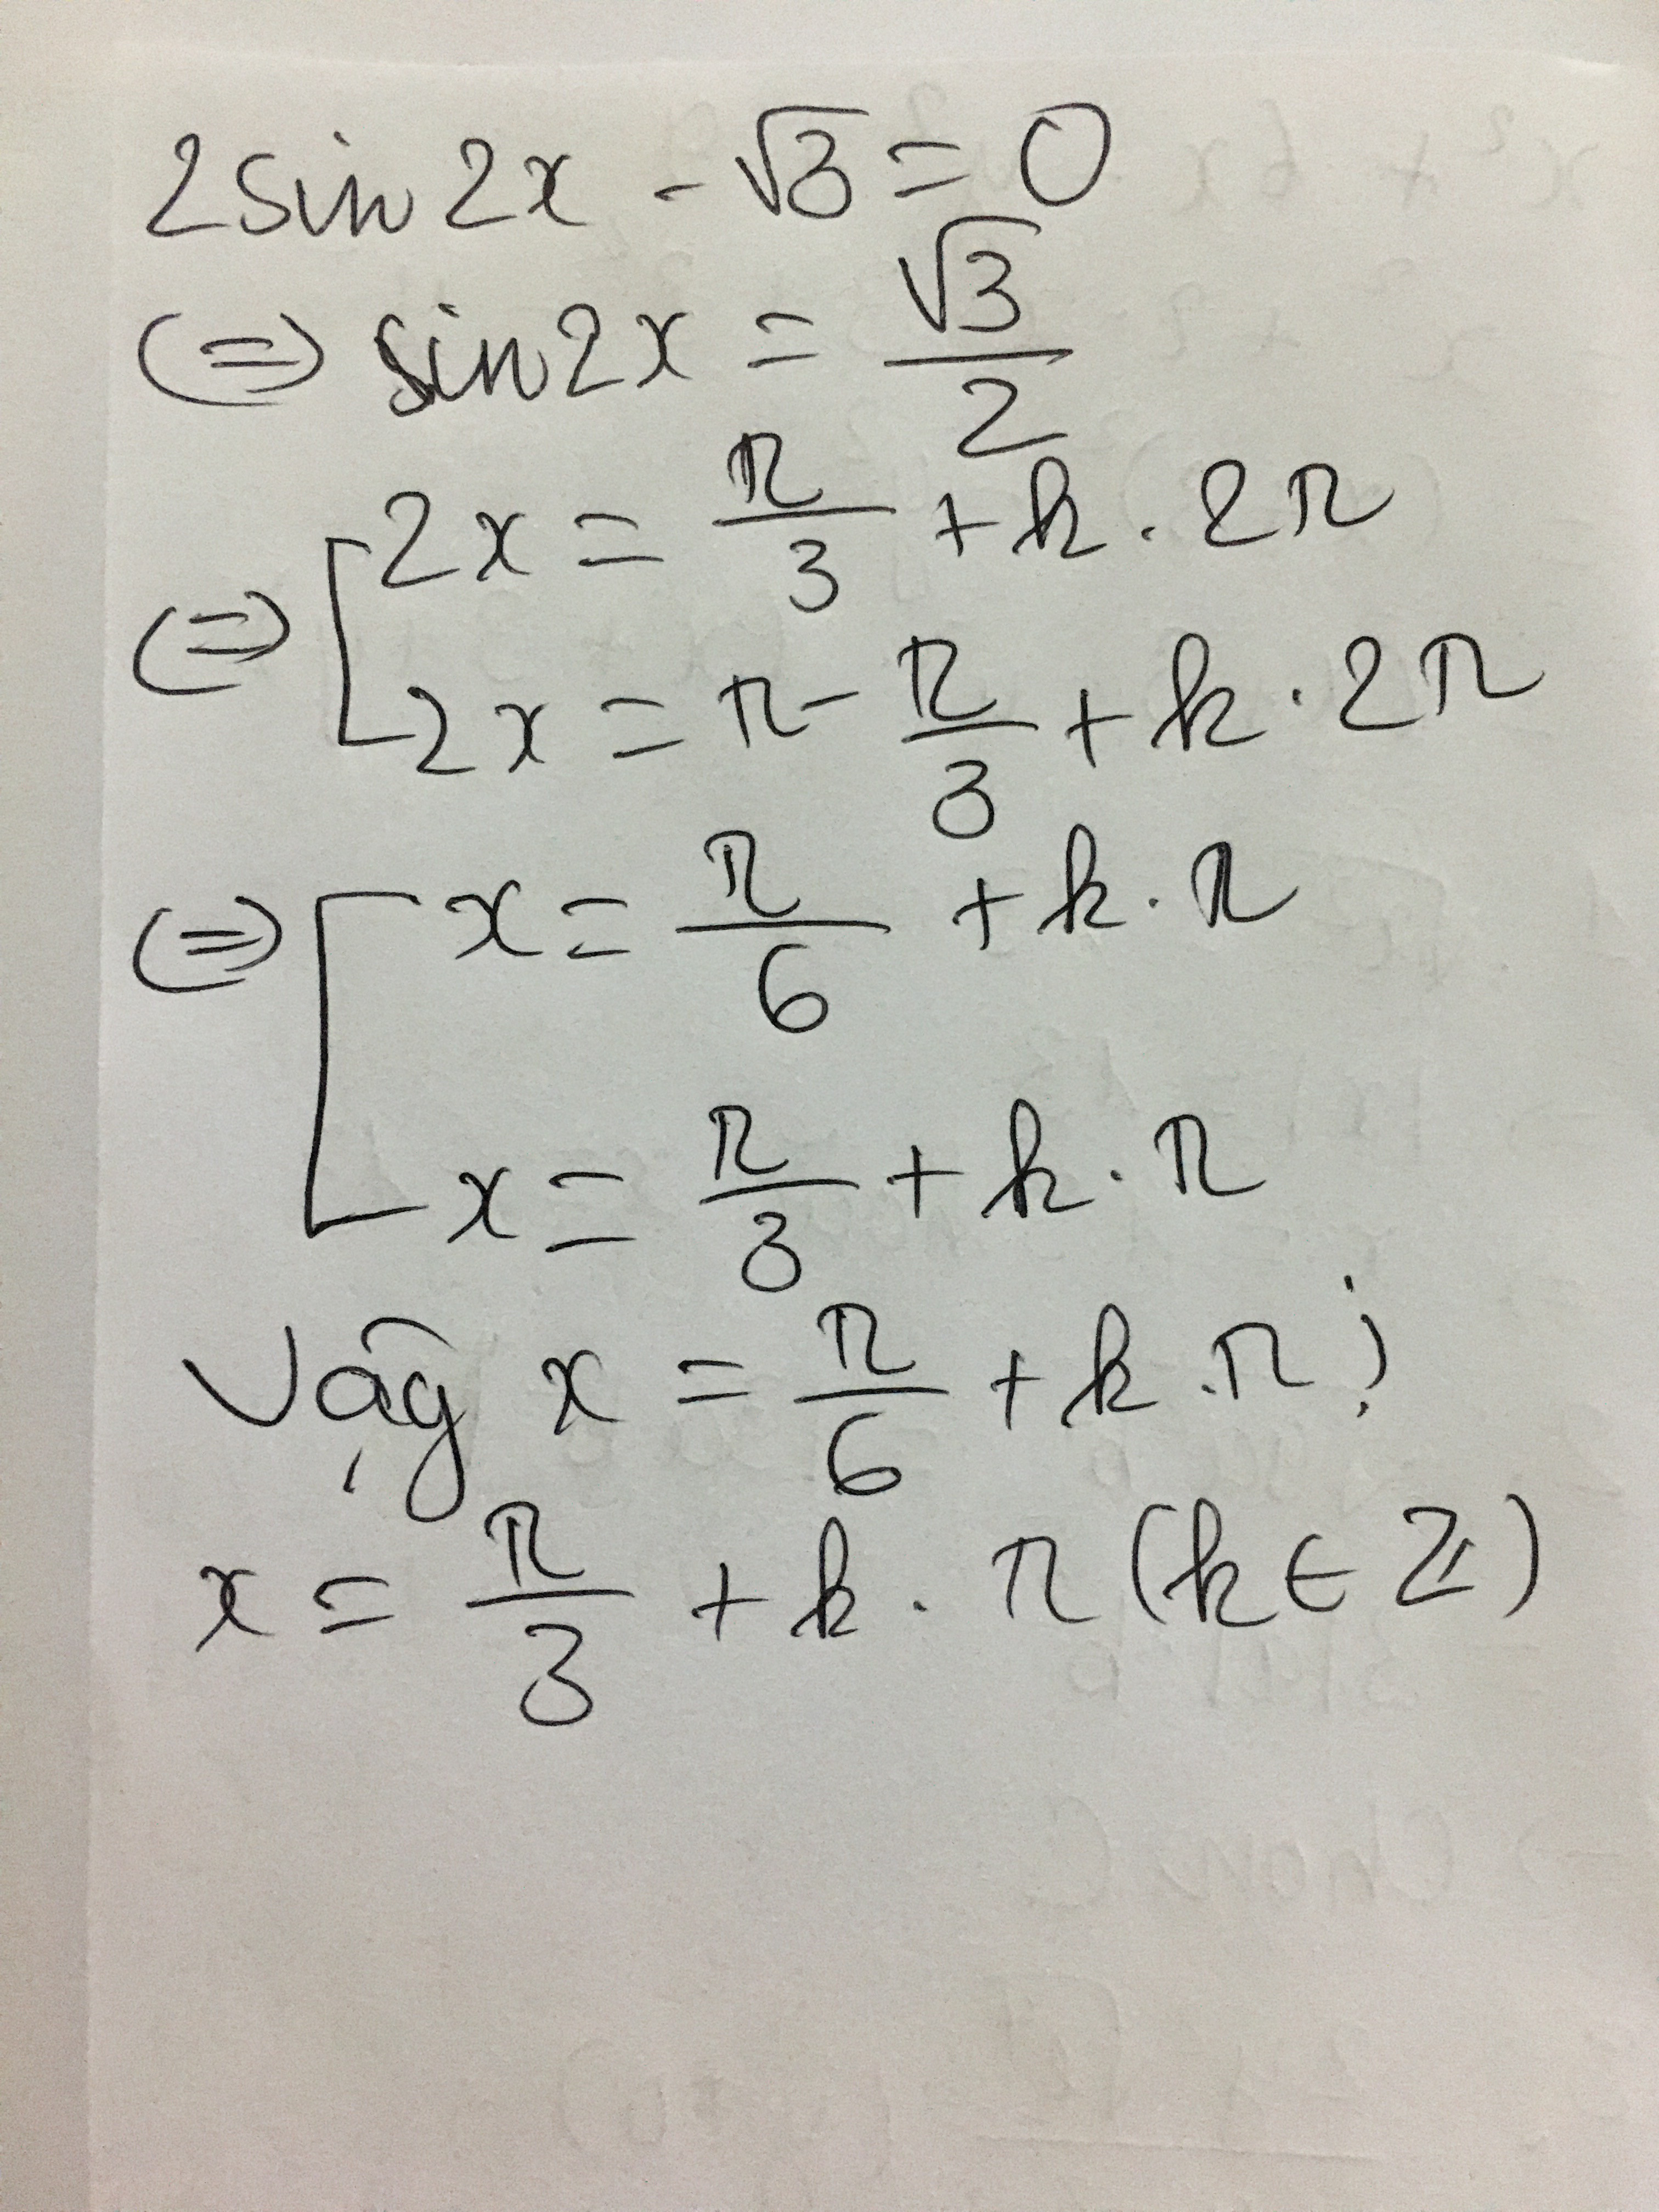 2sin2x - √3 = 0
(=) sin2x = √3/2
(=) [ 2x = π/3 + k . 2π
2x = π - π/3 + k . 2π
(=) [ x = π/6 + k . π
x = π/3 + k . π
Vậy x = π/6 + k . π ;
x = π/3 + k . π (k ∈ Z)